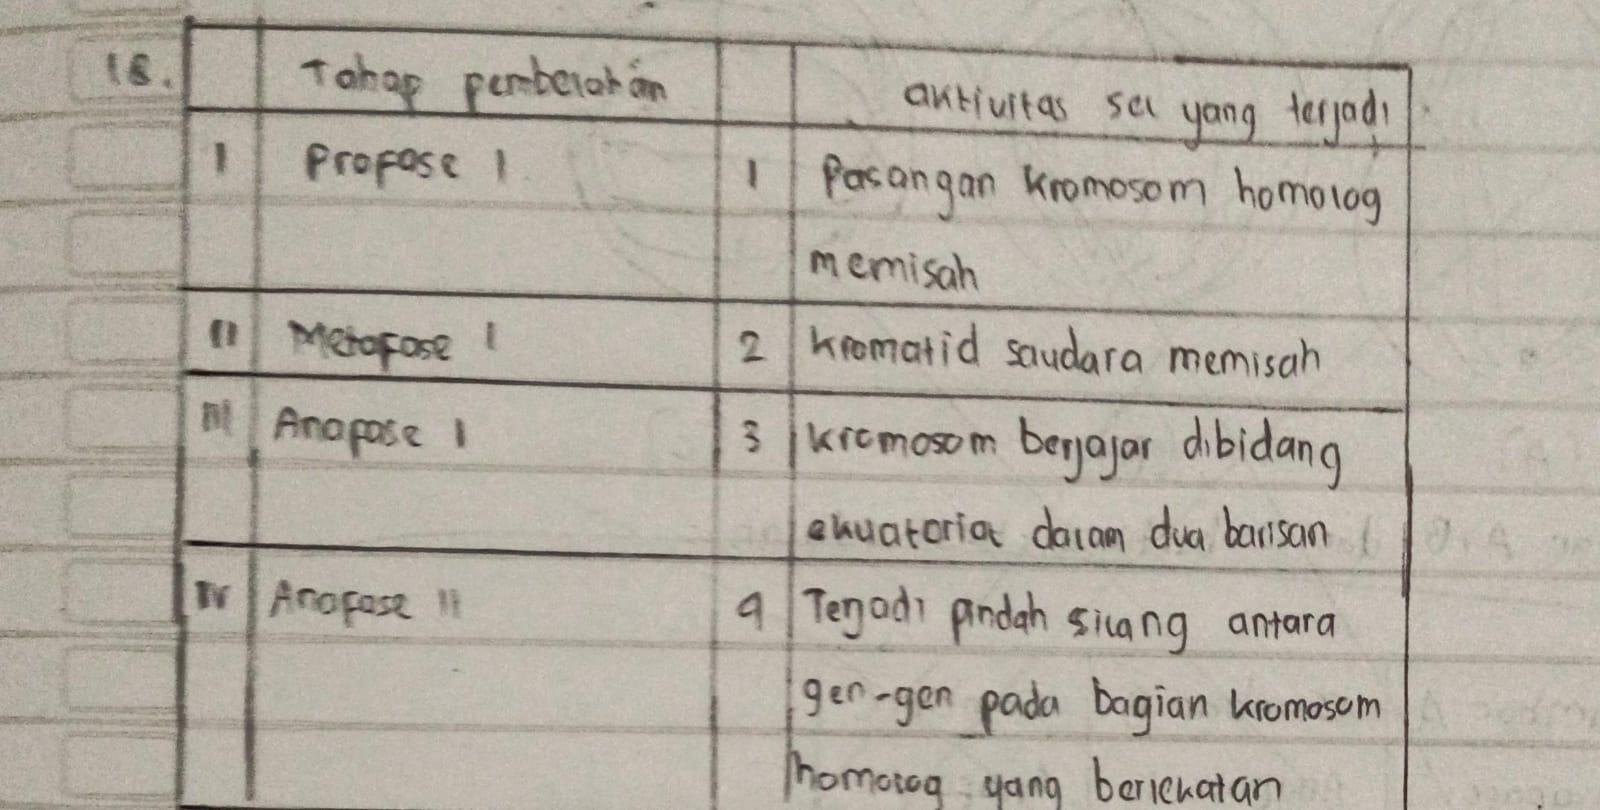 18. Tahap pembelahan aktivitas sel yang terjadi
I Profase I 1 Pasangan Kromosom homolog
memisah
II Metafase I 2 kromatid saudara memisah
III Anafase I 3 kromosom berjajar dibidang
ekuatorial dalam dua barisan
IV Anafase II 4 Terjadi pindah silang antara
gen-gen pada bagian kromosom
homolog yang berlekatan